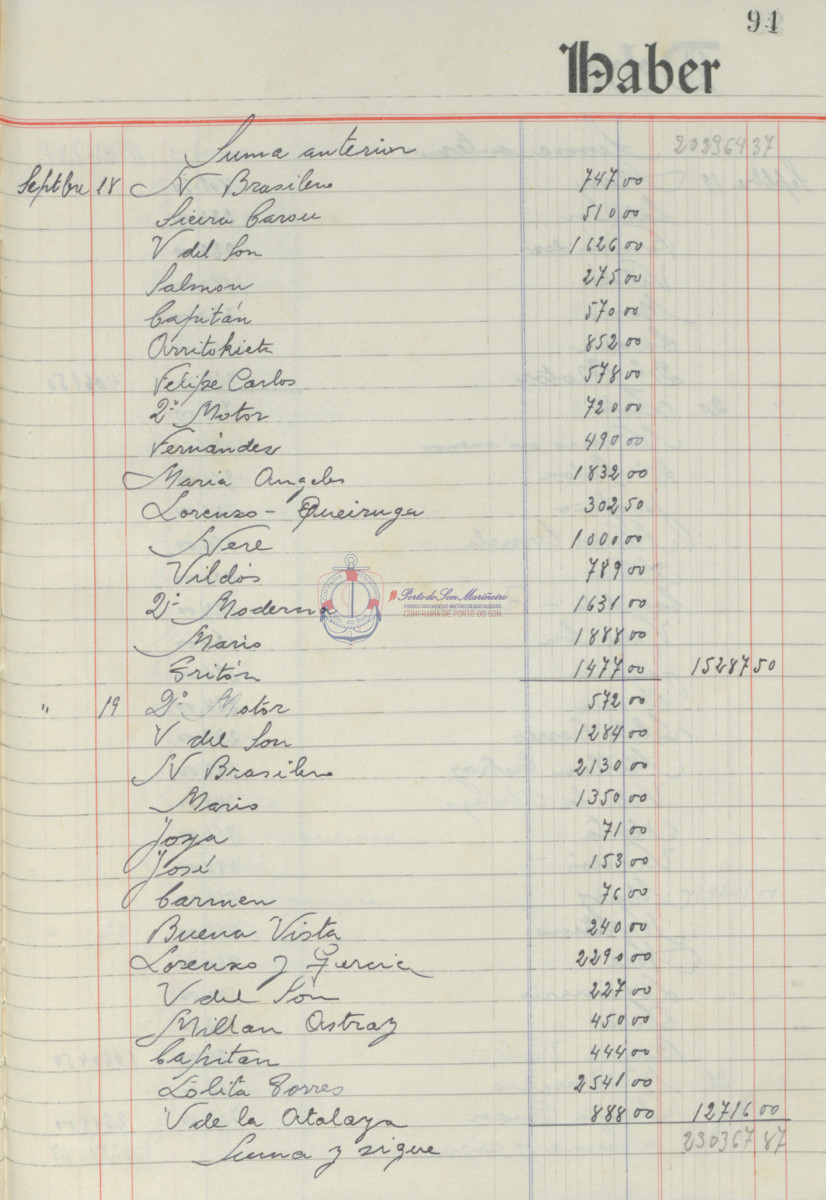 91
Haber
Suma anterior 202364 37
Septbre 18 N Brasileño 747 00
Sieira Carou 510 00
V del Son 1626 00
Salmon 275 00
Capitán 570 00
Arritokieta 852 00
Felipe Carlos 578 00
2º Motor 720 00
Fernández 490 00
Maria Angeles 1832 00
Lorenzo - Queiruga 302 50
Nere 1000 00
Vildós 789 00
2º Moderno 1631 00
Mario 1888 00
Tritón 1477 00 15287 50
" 19 2º Motor 572 00
V del Son 1284 00
N Brasileño 2130 00
Mario 1350 00
Joya 71 00
José 153 00
Carmen 76 00
Buena Vista 240 00
Lorenzo y 2290 00
V del Són 227 00
Millan Astray 450 00
Capitan 444 00
Lolita Torres 2541 00
V de la Atalaya 888 00 12716 00
Suma y sigue 230367 87
#Porto do Son Mariñeiro
CONFRARÍA DE PORTO DO SON